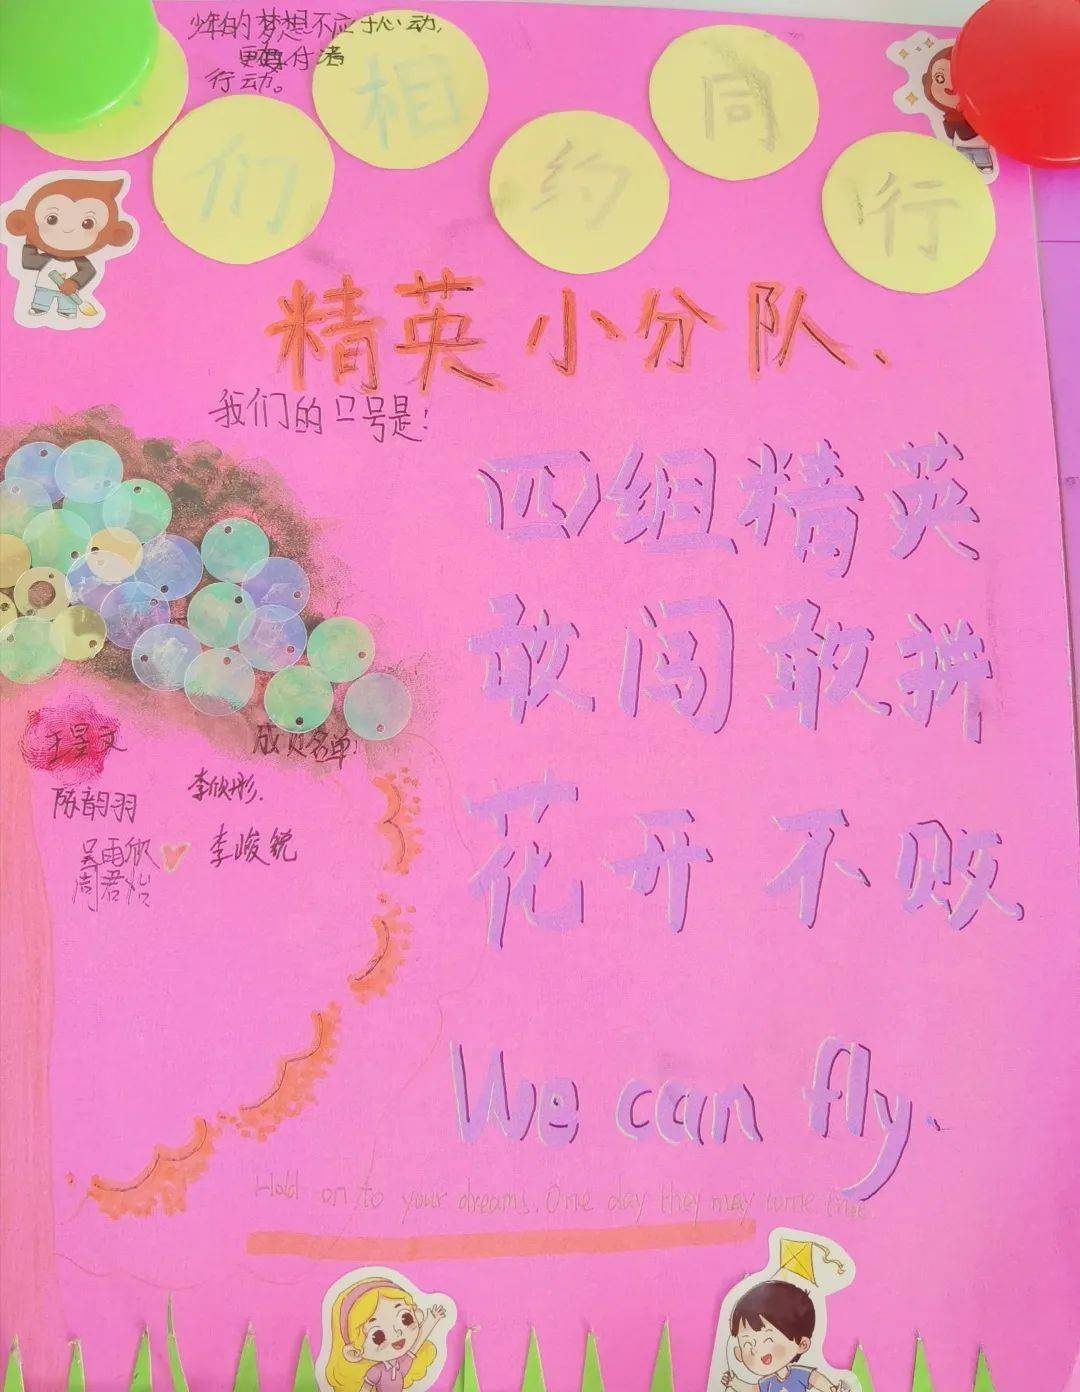 少年的梦想不应止于心动,
更要付诸
行动。
们相约同行
精英小分队、
我们的口号是:
四组精英
敢闯敢拼
花开不败
We can fly.
成员名单:
王昱文
李欣彤.
陈韵羽
李峻锐
吴雨欣
周君怡
Hold on to your dreams. One day they may come true.